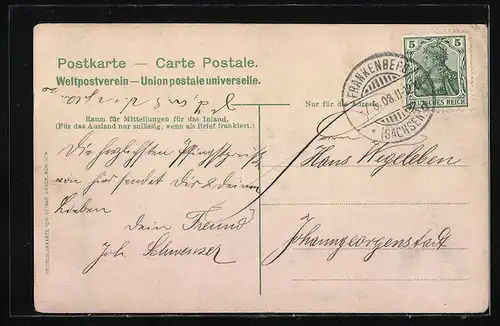 Postkarte — Carte Postale.
Weltpostverein — Union postale universelle.
Raum für Mitteilungen für das Inland.
(Für das Ausland nur zulässig, wenn als Brief frankiert.)
Die herzlichsten Pfingstgrüsse
von hier sendet Dir & deinen
Lieben
dein Freund
Joh. Schwenzer
Nur für die Adresse
5 5
DEUTSCHES REICH
FRANKENBERG
(SACHSEN)
Hans Wegeleben
Johanngeorgenstadt